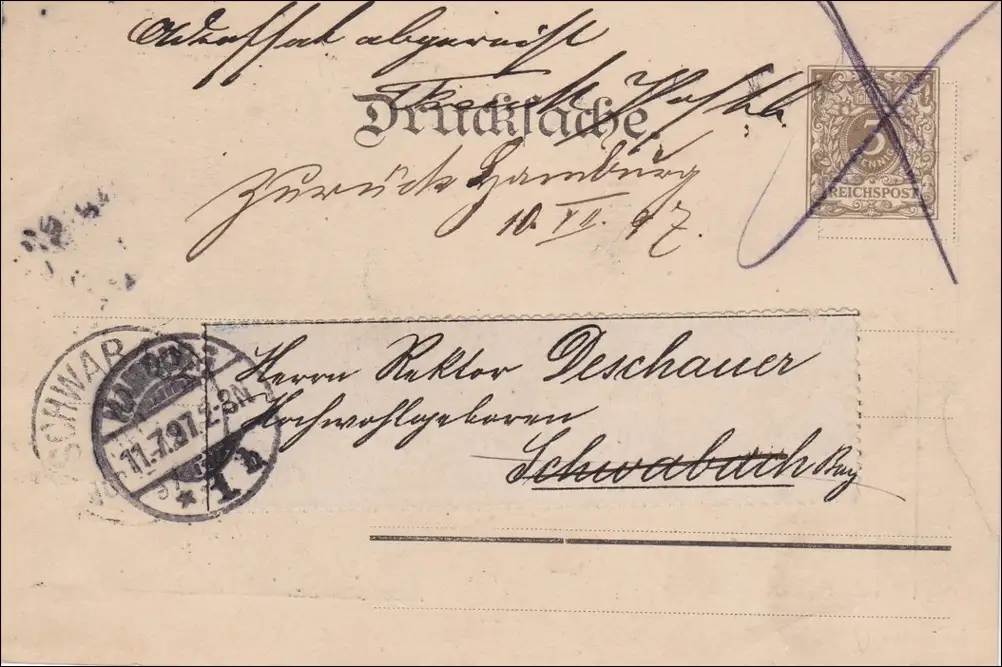 Adressat abgereist
Drucksache.
3
PFENNIG
REICHSPOST
zurück Hamburg
10. VII. 97.
Herrn Rektor Deschauer
Hochwohlgeboren
Schwabach Bay
SCHWABACH
HAMBURG
11.7.97. 2-3N
* 1